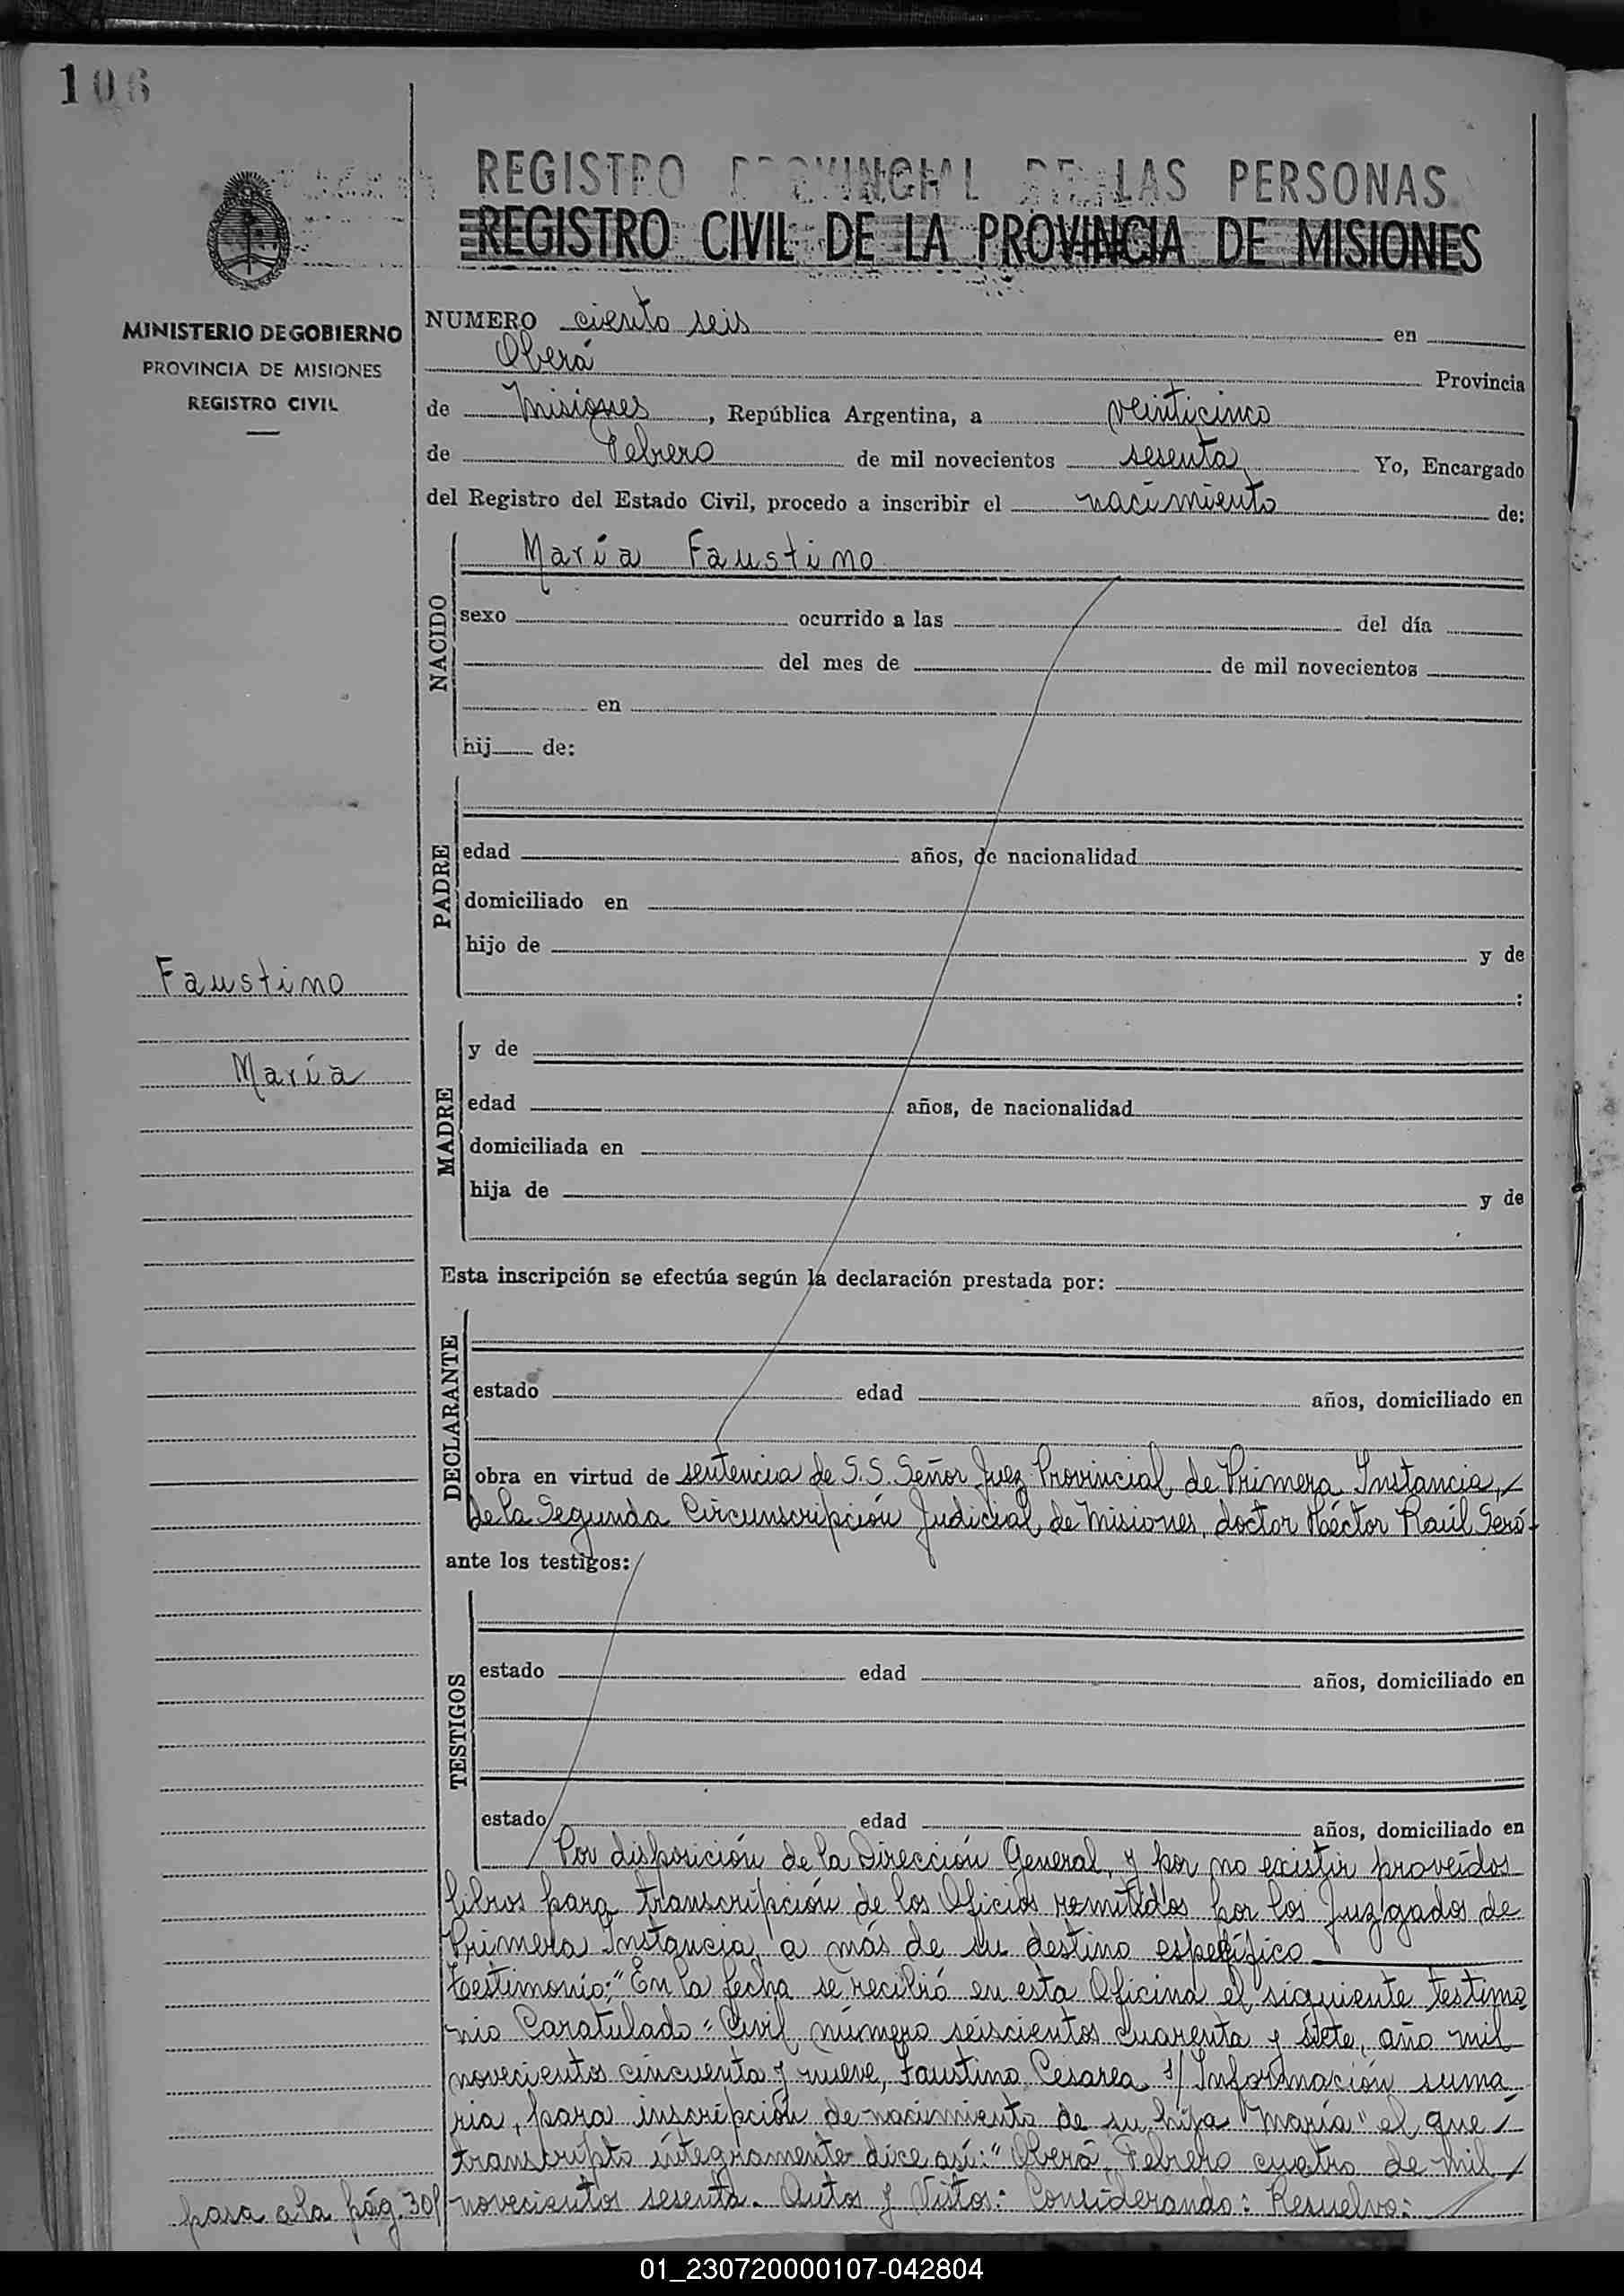 106
REGISTRO PROVINCIAL DE LAS PERSONAS
REGISTRO CIVIL DE LA PROVINCIA DE MISIONES
MINISTERIO DE GOBIERNO
PROVINCIA DE MISIONES
REGISTRO CIVIL
NUMERO ciento seis en
Oberá Provincia
de Misiones, República Argentina, a veinticinco
de Febrero de mil novecientos sesenta Yo, Encargado
del Registro del Estado Civil, procedo a inscribir el nacimiento de:
NACIDO
María Faustino
sexo ocurrido a las del día
del mes de de mil novecientos
en
hij de:
PADRE
edad años, de nacionalidad
domiciliado en
hijo de y de
:
Faustino
María
MADRE
y de
edad años, de nacionalidad
domiciliada en
hija de y de
Esta inscripción se efectúa según la declaración prestada por:
DECLARANTE
estado edad años, domiciliado en
obra en virtud de sentencia de S.S. Señor Juez Provincial de Primera Instancia,
de la Segunda Circunscripción Judicial de Misiones, doctor Héctor Raúl Seró-
ante los testigos:
TESTIGOS
estado edad años, domiciliado en
estado edad años, domiciliado en
Por disposición de la Dirección General, y por no existir proveídos
libros para transcripción de los Oficios remitidos por los Juzgados de
Primera Instancia, a más de su destino específico
Testimonio: "En la fecha se recibió en esta Oficina el siguiente testimo
nio Caratulado = Civil número seiscientos cuarenta y siete, año mil
novecientos cincuenta y nueve, Faustino Cesarea s/ Información suma
ria, para inscripción de nacimiento de su hija "María" el que
transcripto íntegramente dice así: "Oberá, Febrero cuatro de mil
novecientos sesenta. Autos y Vistos: Considerando: Resuelvo:
pasa a la pág. 301
01_230720000107-042804